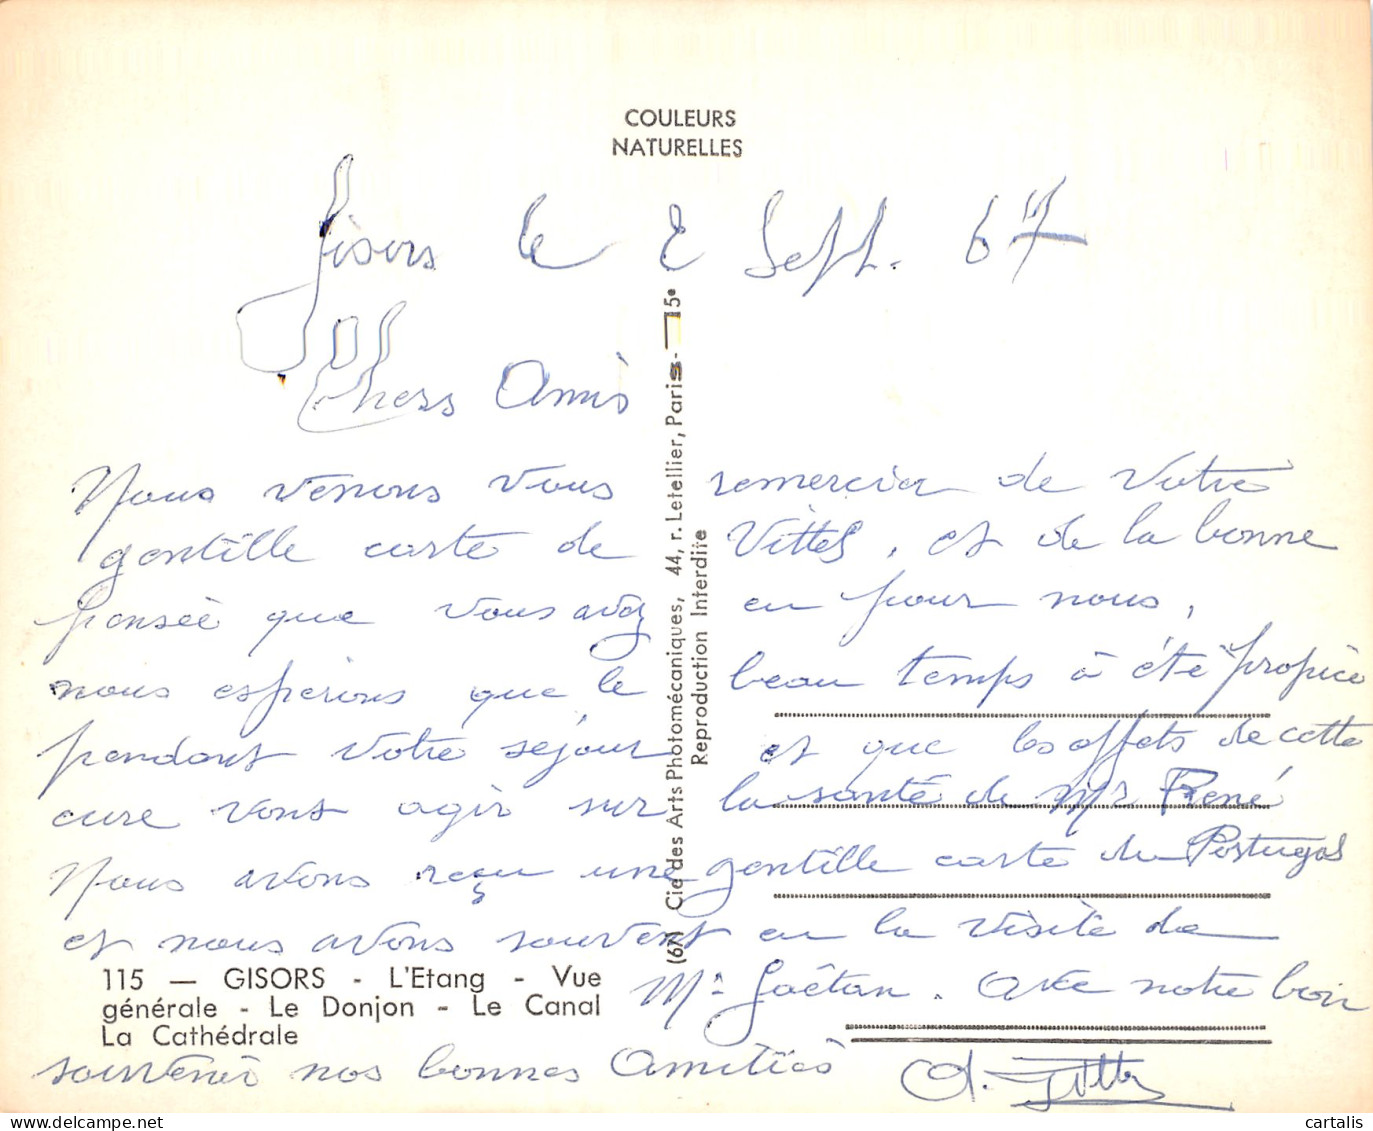 COULEURS
NATURELLES
Gisors le 2 Sept. 67
Chers Amis
Nous venons vous remercier de Votre
gentille carte de Vittel, et de la bonne
pensée que vous avez eu pour nous,
nous espérions que le beau temps à été propice
pendant votre séjour et que les effets de cette
cure vont agir sur la santé de Mr René
Nous avons reçu une gentille carte du Portugal
et nous avons souvent eu la visite de
Mr Gaëtan. Avec notre bon
souvenir nos bonnes Amitiés
115 — GISORS - L'Etang - Vue
générale - Le Donjon - Le Canal
La Cathédrale
(67) Cie des Arts Photomécaniques, 44, r. Letellier, Paris - 15e
Reproduction Interdite
cartalis